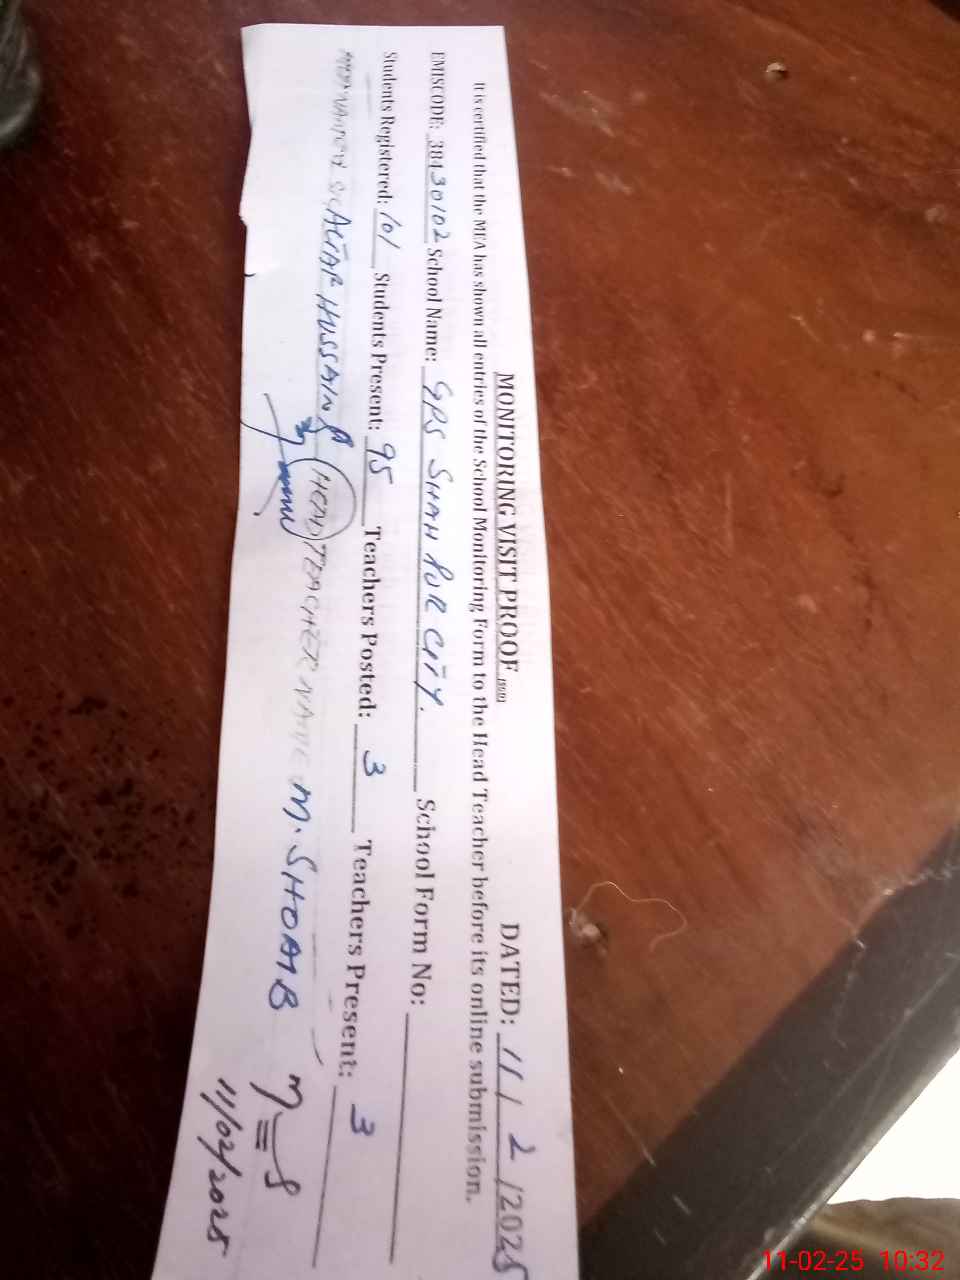 MONITORING VISIT PROOF DATED: 11 / 2 /2025
It is certified that the MEA has shown all entries of the School Monitoring Form to the Head Teacher before its online submission.
EMISCODE: 38430102 School Name: GPS SHAH PUR CITY. School Form No:
Students Registered: 101 Students Present: 95 Teachers Posted: 3 Teachers Present: 3
ALTAF HUSSAIN HEAD TEACHER NAME M. SHOAIB
11/02/2025
11-02-25 10:32